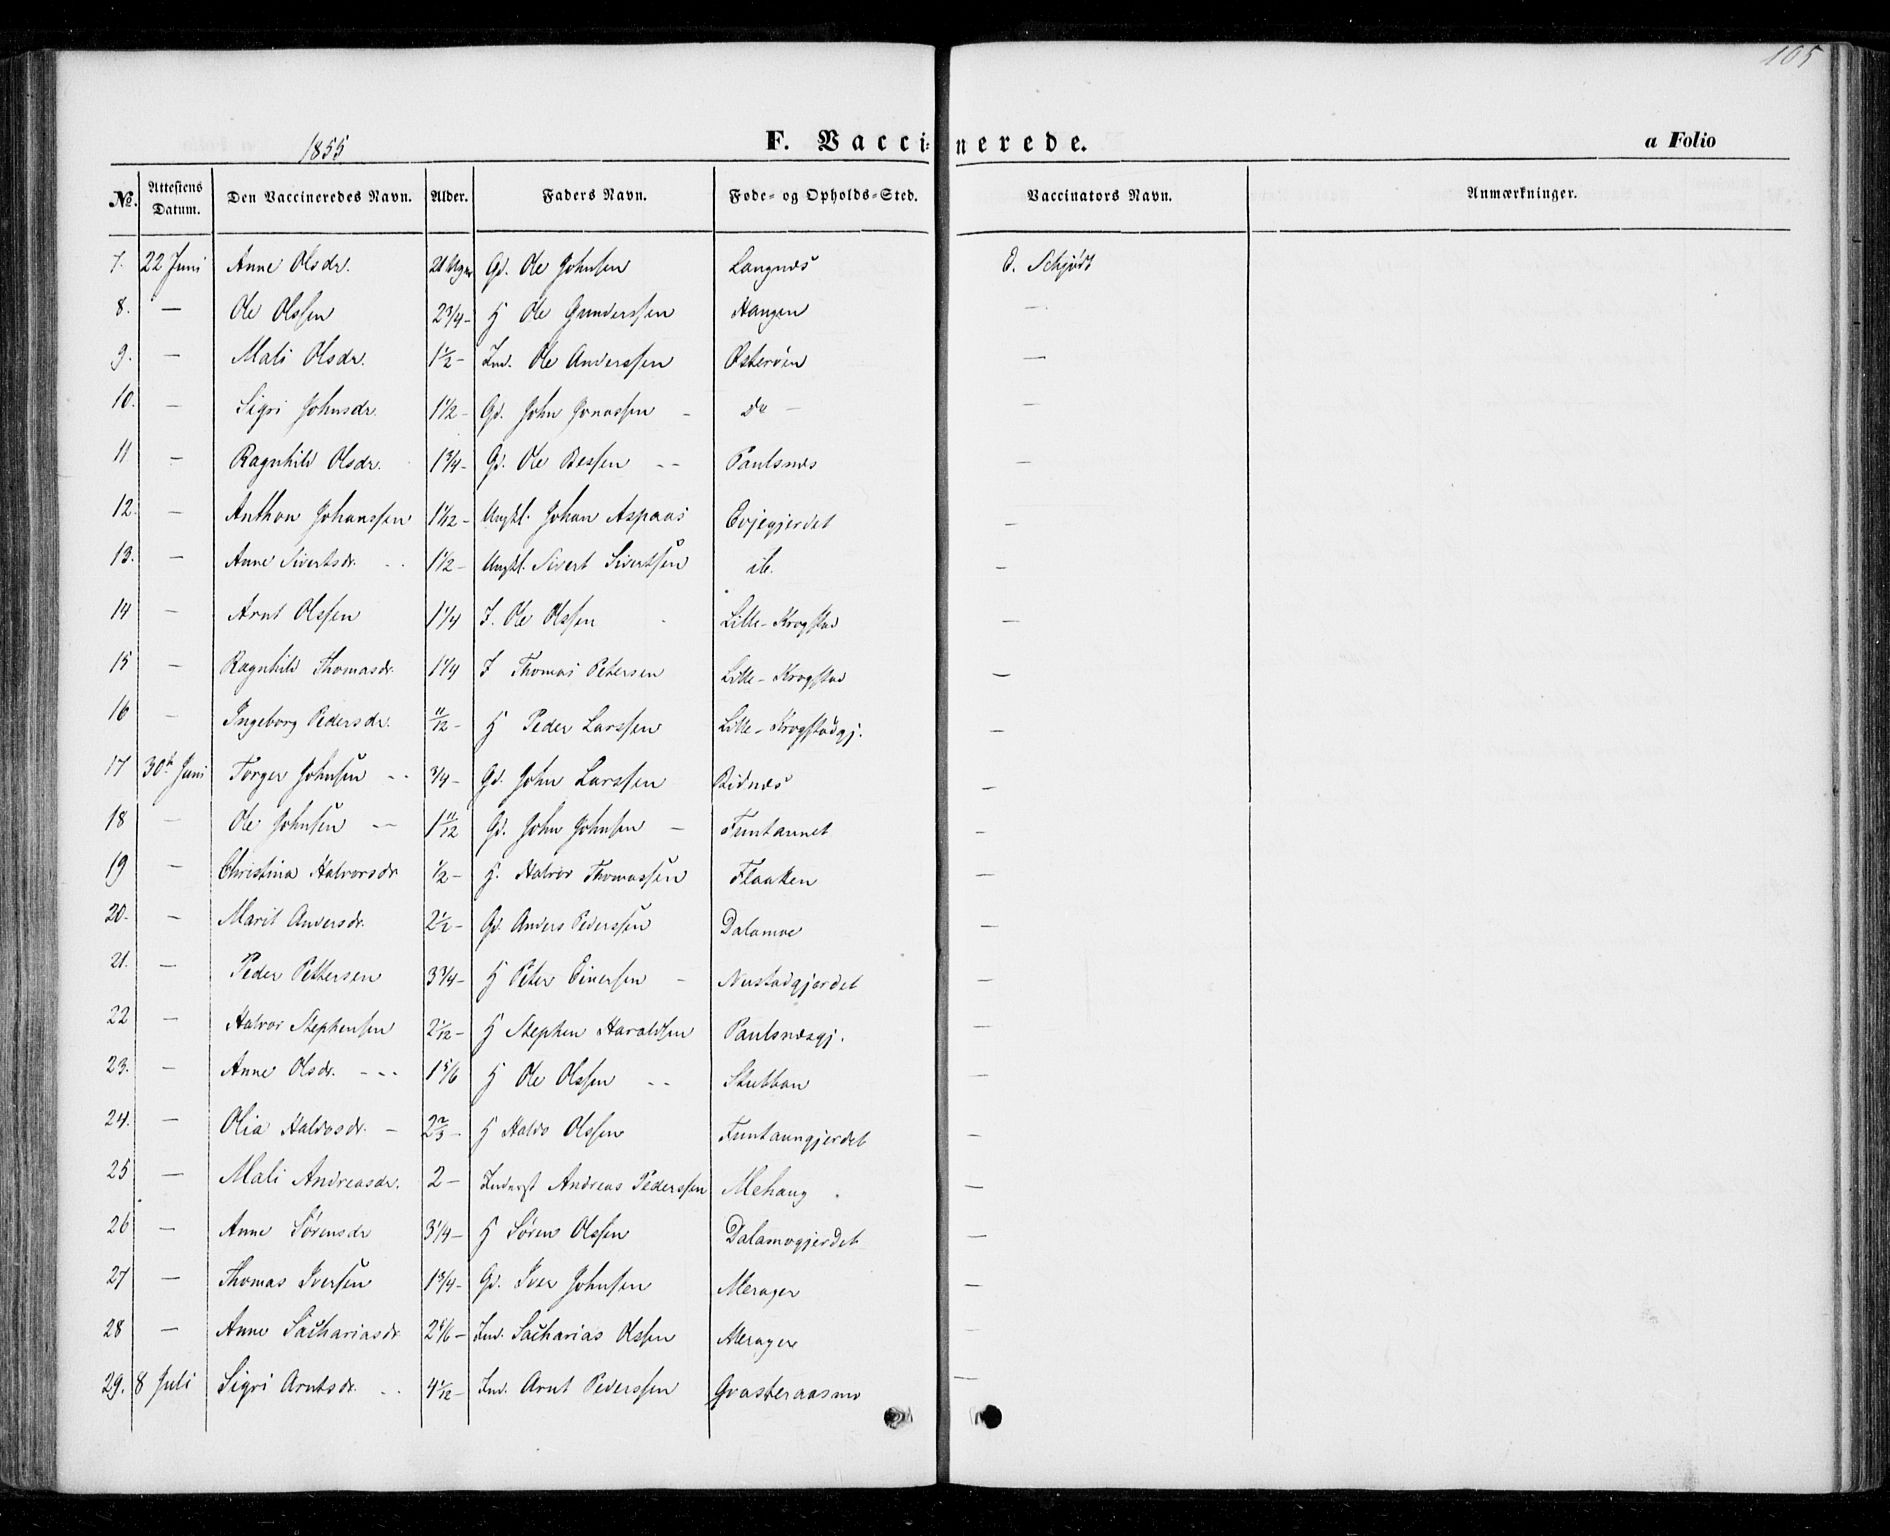 105
1855 F. Vaccinerede. a Folio
No. Attestens Datum. Den Vaccineredes Navn. Alder. Faders Navn. Føde- og Opholds-Sted. Vaccinators Navn. Anmærkninger.
7. 22 Juni Anne Olsdr. Gd. Ole Johnsen Langnæs E. Schjødt
8. — Ole Olssen 2 3/4 - H Ole Gunderssen Haugen —
9. — Mali Olsdr. 1 1/2 - Ind. Ole Anderssen Østerøen —
10. — Sigri Johnsdr. 1 1/2 - Gd. John Jonassen - Do — —
11 — Ragnhild Olsdr. 1 3/4 - Gd. Ole Bessen - - Paulsnæs —
12. — Anthon Johanssen 1 1/12 - Ungkl. Johan Aspaas Evjegjerdet —
13. — Anne Sivertsdr. - - 1 1/2 - Ungkl. Sivert Sivertsen ib. —
14 — Arnt Olssen 1 1/4 I. Ole Olssen Lille-Krogstad —
15 — Ragnhild Thomasdr. 1 1/4 I Thomas Petersen Lille-Krogstad —
16 — Ingeborg Pedersdr. 11/12 - H Peder Larssen Lille-Krogstadgj. —
17 30t Juni Torger Johnsen - - 3/4 - Gd. John Larssen Bidnæs —
18 — Ole Johnsen - - 1 11/12 Gd. John Johnsen — Funtaunet —
19 — Christina Halvorsdr 1/2 - H. Halvor Thomassen Flaaken —
20. — Marit Andersdr. 2 1/2 - Gd. Anders Pederssen Dalamoe —
21. — Peder Pettersen 3 3/4 - H Peter Einersen - Nustadgjerdet —
22 — Halvor Stephensen 2 1/12 - H Stephen Haraldsen Paulsnæsgj. —
23. — Anne Olsdr. - - - 1 5/6 H Ole Olssen - - Stubban —
24. — Olia Haldosdr. - 2 2/3 - H Haldo Olssen Funtaungjerdet —
25 — Mali Andreasdr. 2 - Inderst Andreas Pederssen Mehaug —
26 — Anne Sørensdr 3 1/4 - H Søren Olssen Dalamogjerdet —
27 — Thomas Iversen 1 3/4 - Gd. Iver Johnsen Merager —
28 — Anne Sachariasdr. Ind. Sacharias Olssen Merager —
29. 8 Juli Sigri Arntsdr. - - 4 1/12 - Ind. Arnt Pederssen Gvasteraasmo —